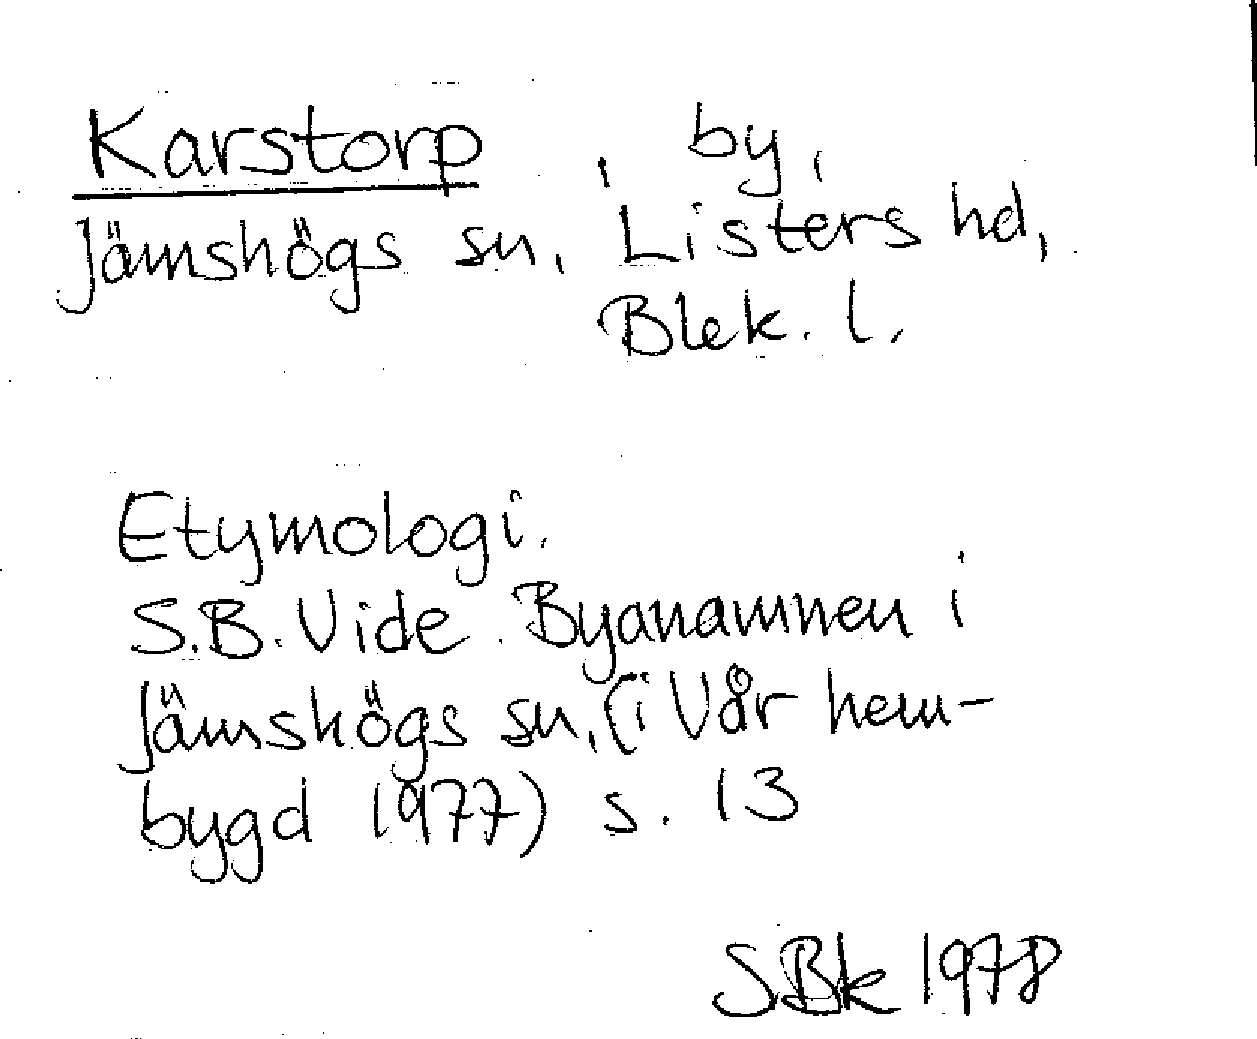 Karstorp, by,
Jämshögs sn, Listers hd,
Blek. l.
Etymologi.
S.B. Vide. Byanamnen i
Jämshögs sn, (i Vår hem-
bygd 1977) s. 13
SBk 1978